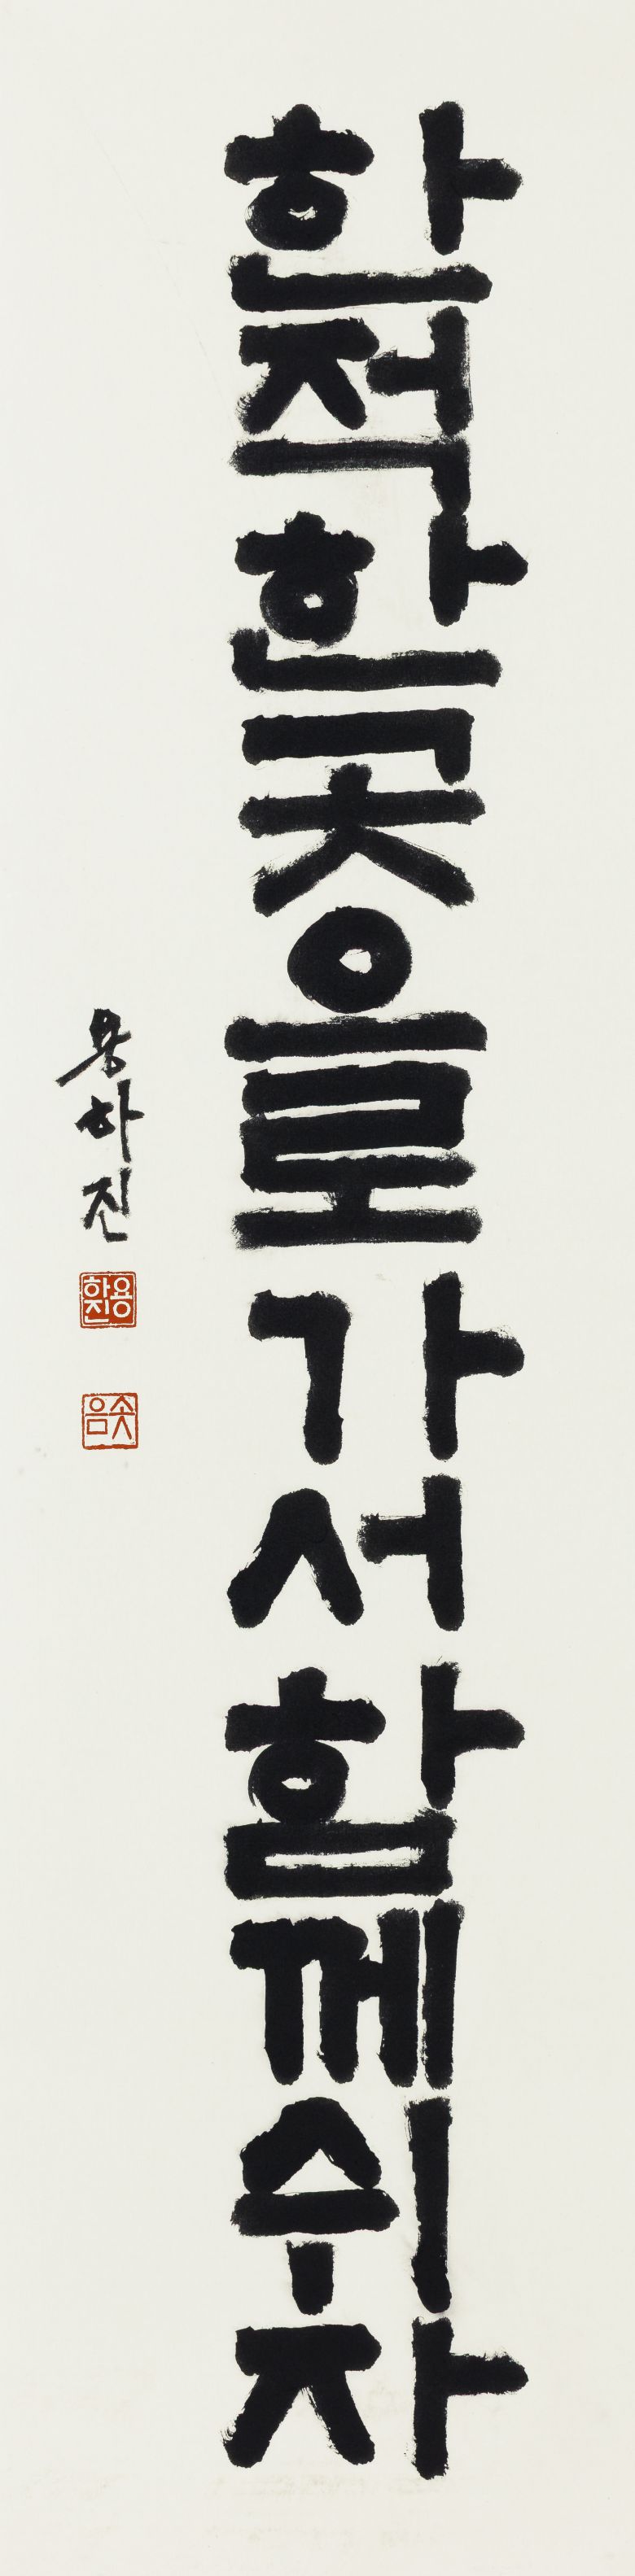 한적한 곳으로 가서 함께 쉬자
용하진
용하진